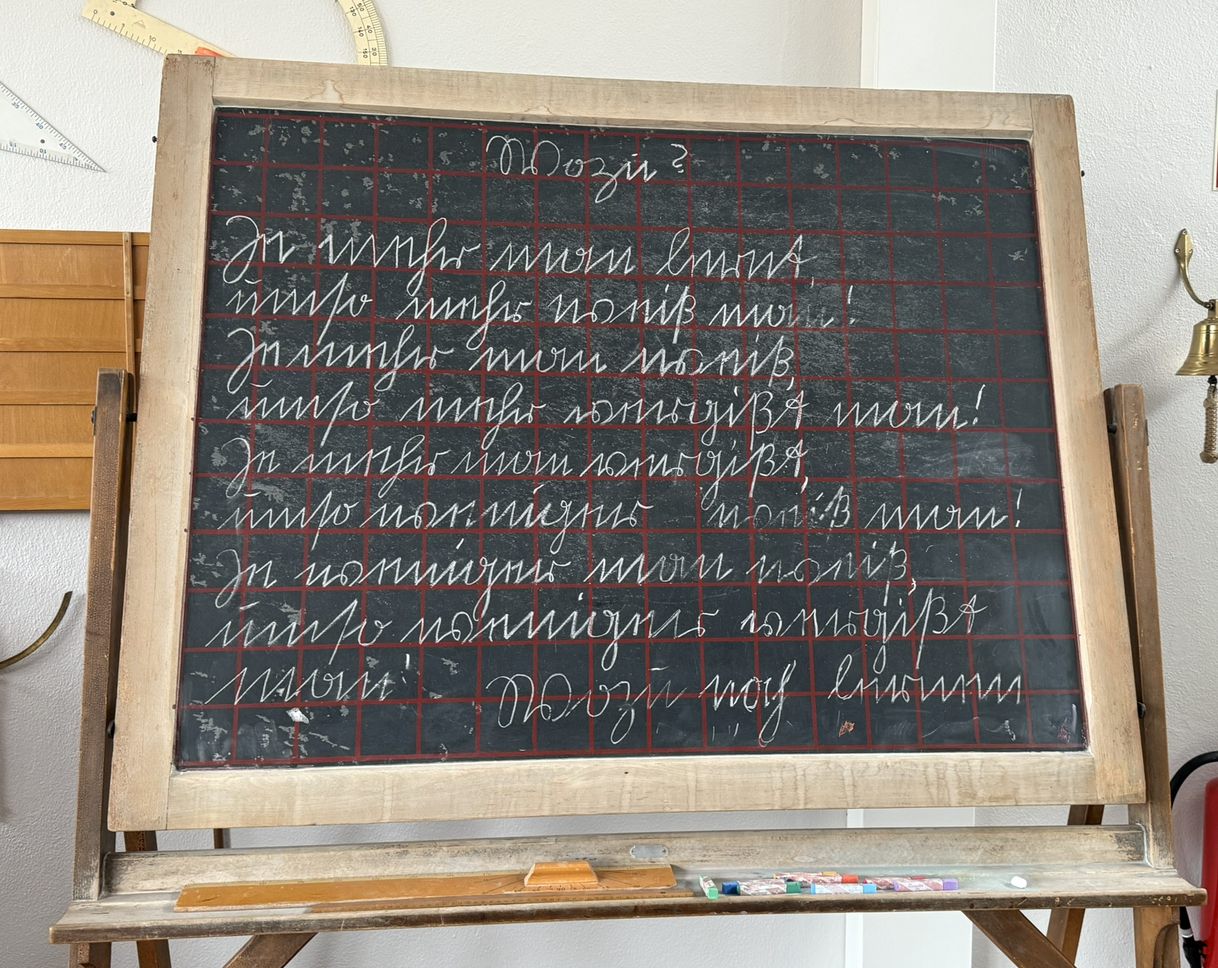 Wozu?
Je mehr man lernt,
umso mehr weiß man!
Je mehr man weiß,
umso mehr vergißt man!
Je mehr man vergißt,
umso weniger weiß man!
Je weniger man weiß,
umso weniger vergißt
man! Wozu noch lernen